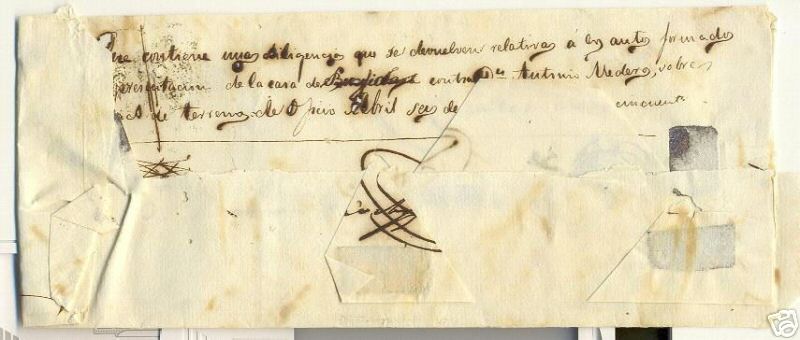 Que contiene unas diligencias que se devuelven relativas á los autos formados
presentacion de la casa de contra Dn. Antonio Medero, sobre
de terreno. de Oficio Abril seis de cincuenta